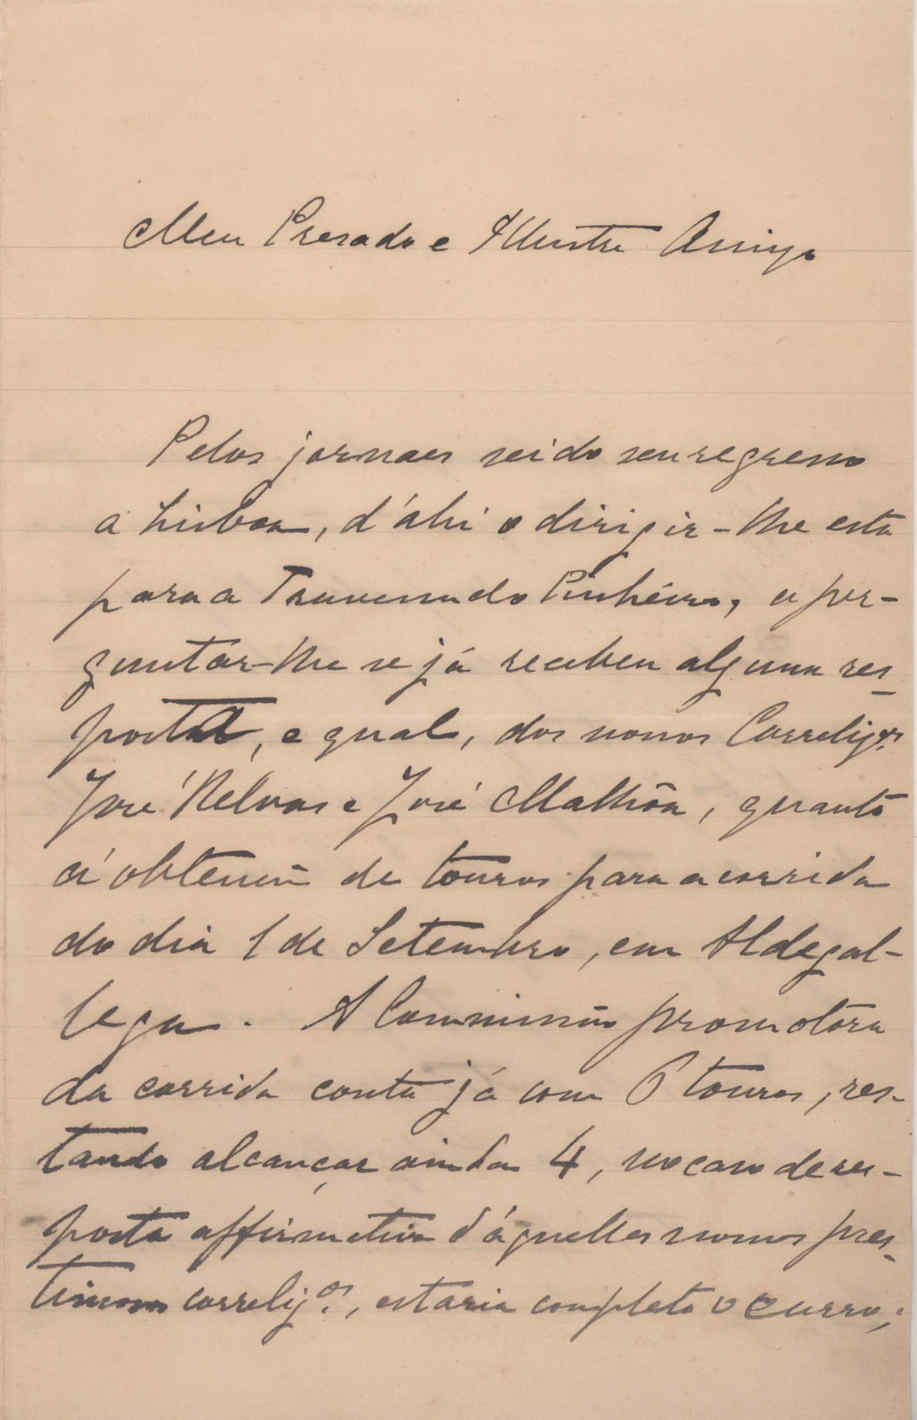 Meu Presado e Illustre Amigo
Pelos jornaes sei do seu regresso
a Lisboa, d'ahi o dirigir-lhe esta
para a Travessa do Pinheiro, a per-
guntar-lhe se já recebeu alguma res-
posta, e qual, dos nossos Correligos.
José Relvas e José Malhôa, quanto
á obtenção de touros para a corrida
do dia 1 de Setembro, em Aldegal-
lega. A Commissão promotora
da corrida conta já com 6 touros, res-
tando alcançar ainda 4, no caso de res-
posta affirmativa d'áquelles nossos pres-
timosos correligos., estaria completo o curro;